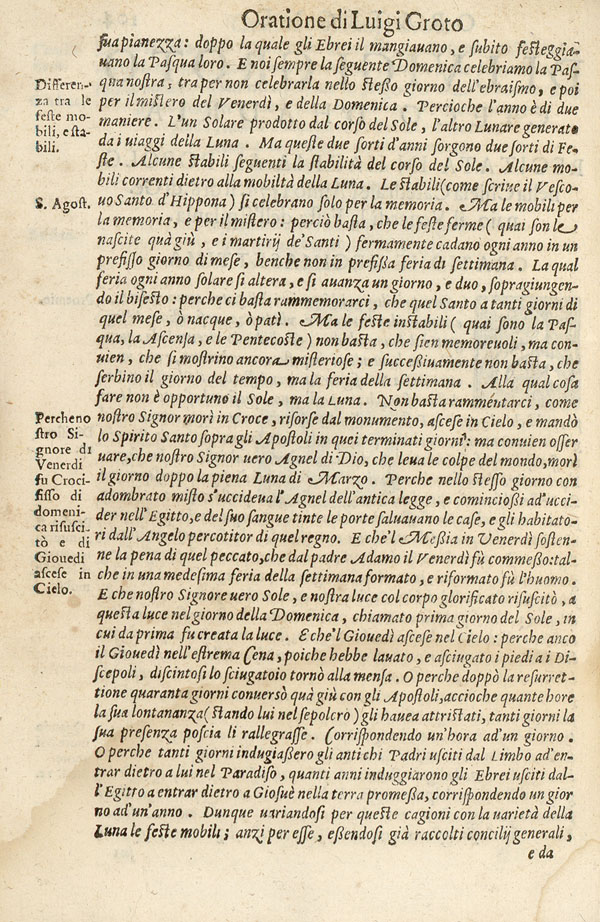 Oratione di Luigi Groto
sua pianezza: doppo la quale gli Ebrei il mangiauano, e subito festeggia-
uano la Pasqua loro. E noi sempre la seguente Domenica celebriamo la Pas-
qua nostra, tra per non celebrarla nello stesso giorno dell'ebraismo, e poi
per il mistero del Venerdì, e della Domenica. Percioche l'anno è di due
maniere. L'un Solare prodotto dal corso del Sole, l'altro Lunare generato
da i uiaggi della Luna. Ma queste due sorti d'anni sorgono due sorti di Fe-
ste. Alcune stabili seguenti la stabilità del corso del Sole. Alcune mo-
bili correnti dietro alla mobiltà della Luna. Le stabili (come scriue il Vesco-
uo Santo d'Hippona) si celebrano solo per la memoria. Ma le mobili per
la memoria, e per il mistero: perciò basta, che le feste ferme ( quai son le
nascite quà giù, e i martirij de'Santi ) fermamente cadano ogni anno in un
prefisso giorno di mese, benche non in prefissa feria di settimana. La qual
feria ogni anno solare si altera, e si auanza un giorno, e duo, sopragiungen-
do il bisesto: perche ci basta rammemorarci, che quel Santo a tanti giorni di
quel mese, ò nacque, ò patì. Ma le feste instabili ( quai sono la Pas-
qua, la Ascensa, e le Pentecoste ) non basta, che sien memoreuoli, ma con-
uien, che si mostrino ancora misteriose; e successiuamente non basta, che
serbino il giorno del tempo, ma la feria della settimana. Alla qual cosa
fare non è opportuno il Sole, ma la Luna. Non basta ramméntarci, come
nostro Signor morì in Croce, risorse dal monumento, ascese in Cielo, e mandò
lo Spirito Santo sopra gli Apostoli in quei terminati giorni: ma conuien osser
uare, che nostro Signor uero Agnel di Dio, che leua le colpe del mondo, morì
il giorno doppo la piena Luna di Marzo. Perche nello stesso giorno con
adombrato misto s'uccideua l'Agnel dell'antica legge, e cominciossi ad'ucci-
der nell'Egitto, e del suo sangue tinte le porte saluauano le case, e gli habitato-
ri dall'Angelo percotitor di quel regno. E che'l Messia in Venerdì sosten-
ne la pena di quel peccato, che dal padre Adamo il Venerdì fù commesso: tal-
che in una medesima feria della settimana formato, e riformato fù l'huomo.
E che nostro Signore uero Sole, e nostra luce col corpo glorificato risuscitò, a
questa luce nel giorno della Domenica, chiamato prima giorno del Sole, in
cui da prima fu creata la luce. E che'l Giouedì ascese nel Cielo: perche anco
il Giouedì nell'estrema Cena, poiche hebbe lauato, e asciugato i piedi a i Di-
scepoli, discintosi lo sciugatoio tornò alla mensa. O perche doppò la resurret-
tione quaranta giorni conuersò quà giù con gli Apostoli, accioche quante hore
la sua lontananza ( stando lui nel sepolcro ) gli hauea attristati, tanti giorni la
sua presenza poscia li rallegrasse. Corrispondendo un'hora ad'un giorno.
O perche tanti giorni indugiassero gli antichi Padri usciti dal Limbo ad'en-
trar dietro a lui nel Paradiso, quanti anni induggiarono gli Ebrei usciti dal-
l'Egitto a entrar dietro a Giosuè nella terra promessa, corrispondendo un gior
no ad'un'anno. Dunque uariandosi per queste cagioni con la uarietà della
Luna le feste mobili; anzi per esse, essendosi già raccolti concilij generali,
e da
Differen-
za tra le
feste mo-
bili, e sta-
bili.
S. Agost.
Perche no
stro Si-
gnore di
Venerdi
fu Croci-
fisso di
domeni-
ca risusci-
tò e di
Giouedi
ascese in
Cielo.